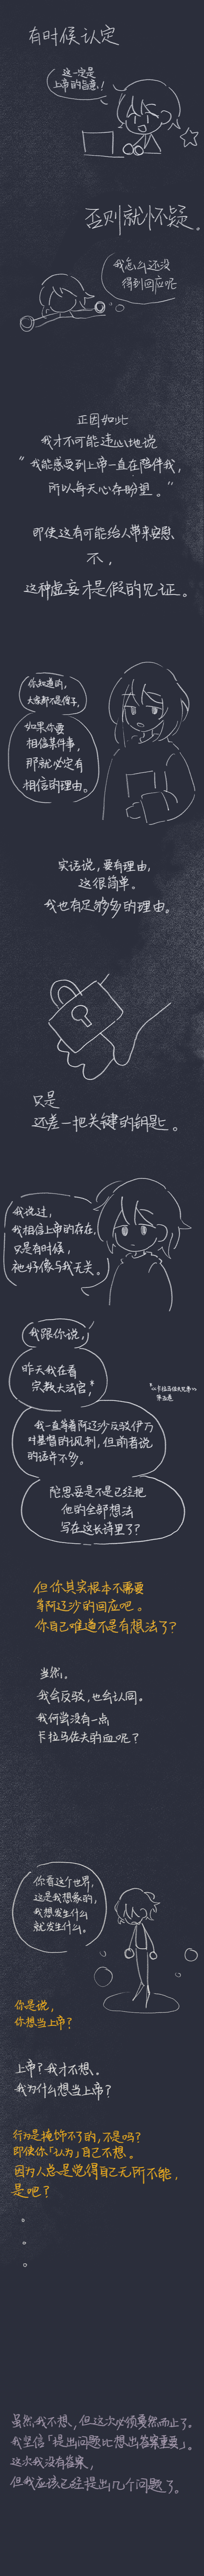 有时候认定
这一定是
上帝的旨意!
否则就怀疑。
我怎么还没
得到回应呢
正因如此
我才不可能违心地说
“我能感受到上帝一直在陪伴我,
所以每天心存盼望。”
即使这有可能给人带来安慰、
不,
这种虚妄才是假的见证。
你知道的,
大家都不是傻子,
如果你要
相信某件事,
那就必定有
相信的理由。
实话说,要有理由,
这很简单。
我也有足够多的理由。
只是
还差一把关键的钥匙。
我说过,
我相信上帝的存在,
只是有时候,
祂好像与我无关。
我跟你说,
昨天我在看
宗教大法官,*
*《卡拉马佐夫兄弟》
第五卷
我一直等着阿辽沙反驳伊万
对基督的讽刺,但前者说
的话并不多。
陀思妥是不是已经把
他的全部想法
写在这长诗里了?
但你其实根本不需要
等阿辽沙的回应吧。
你自己难道不是有想法了?
当然。
我会反驳,也会认同。
我何尝没有一点
卡拉马佐夫的血呢?
你看这个世界,
这是我想象的,
我想发生什么
就发生什么。
你是说,
你想当上帝?
上帝?我才不想。
我为什么想当上帝?
行为是掩饰不了的,不是吗?
即使你「认为」自己不想。
因为人总是觉得自己无所不能,
是吧?
。
。
。
虽然我不想,但这次必须戛然而止了。
我坚信「提出问题比想出答案重要」。
这次我没有答案,
但我应该已经提出几个问题了。